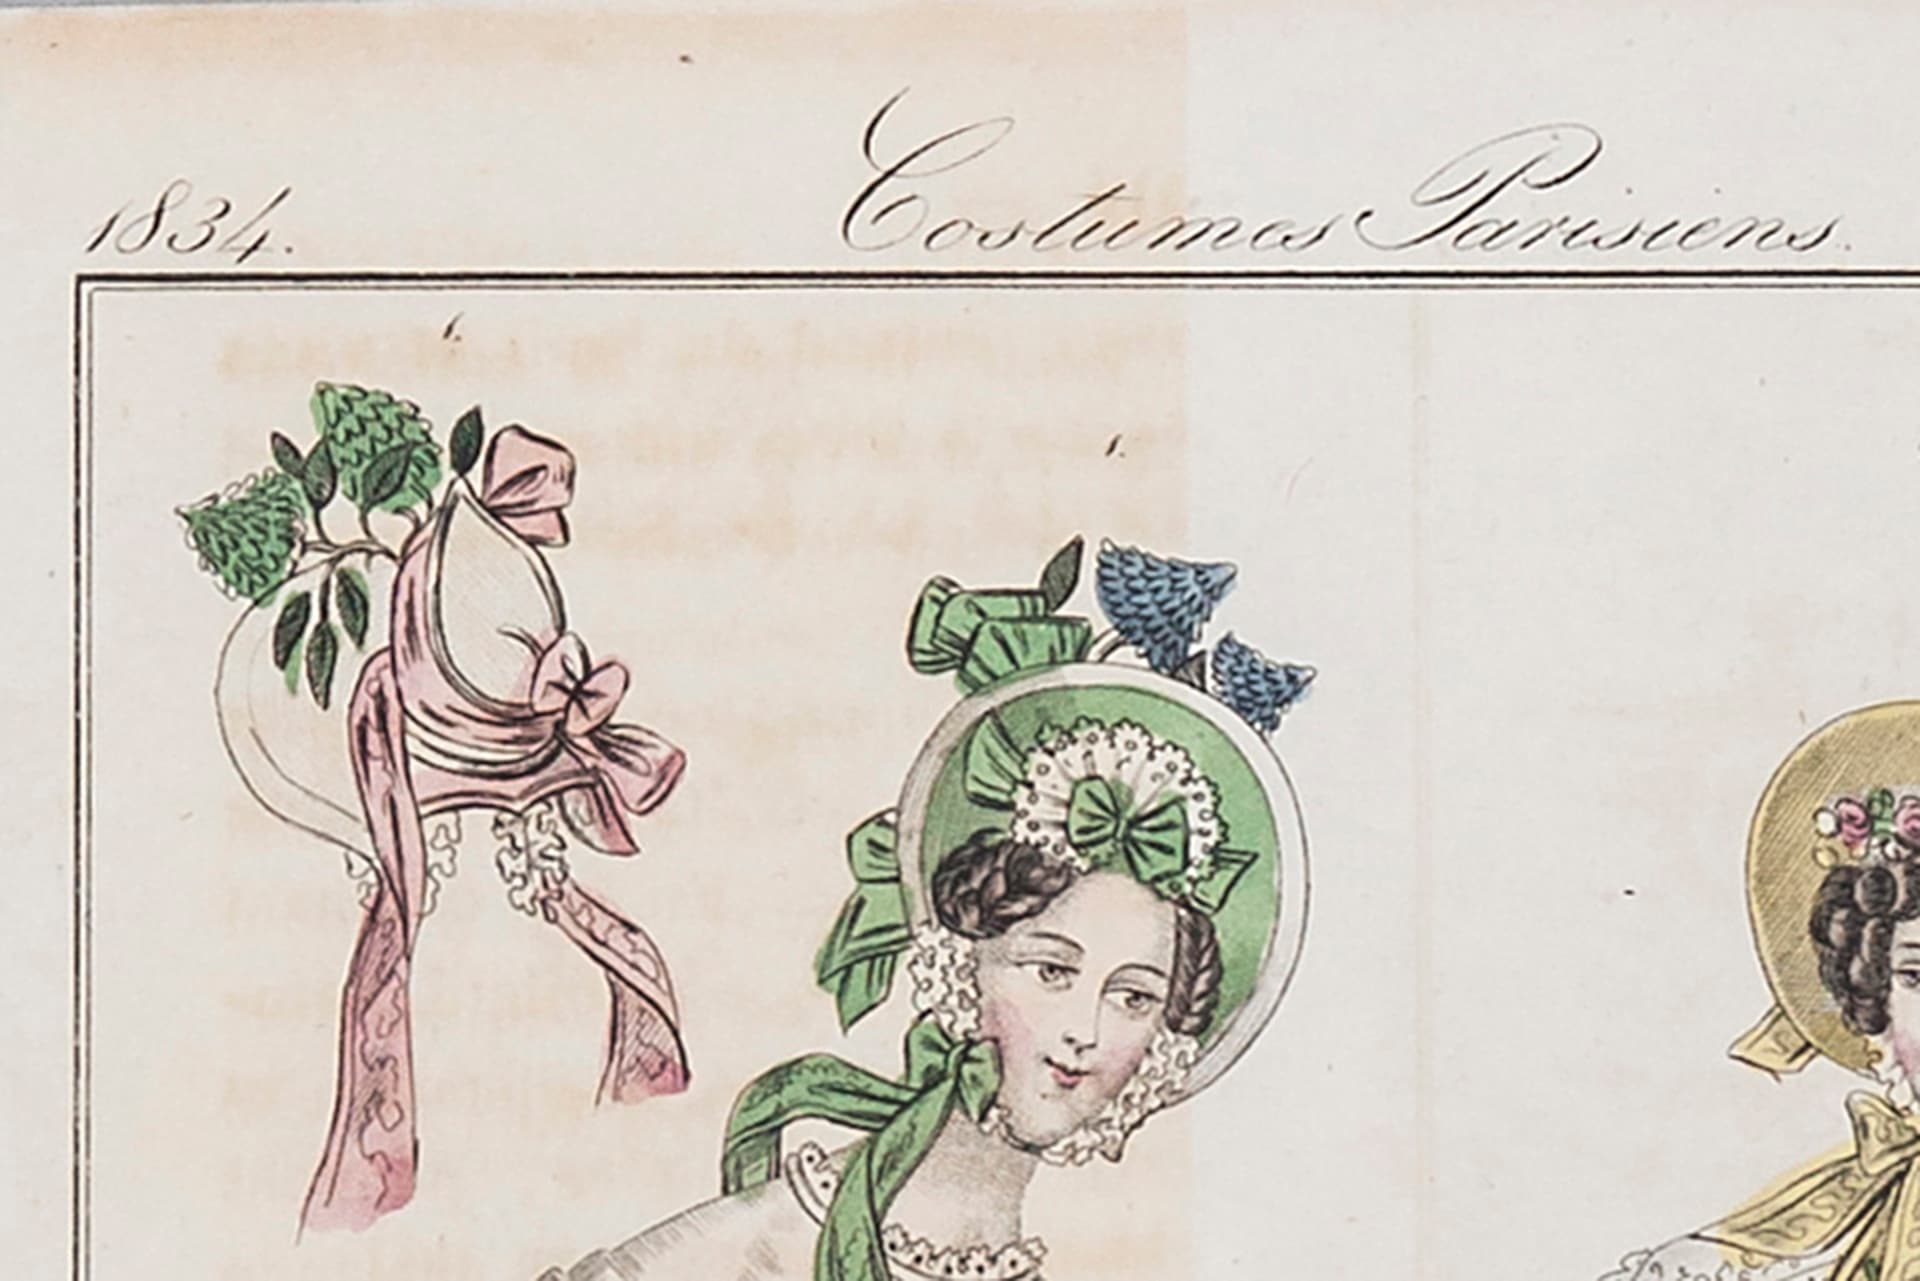 1834. Costumes Parisiens.
1.
1.